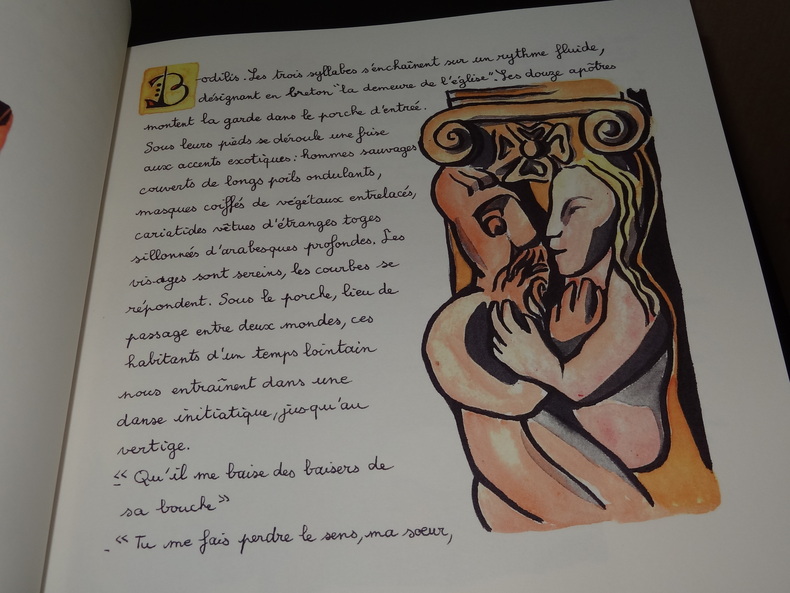 Bodilis. Les trois syllabes s'enchaînent sur un rythme fluide,
désignant en breton "la demeure de l'église". Les douze apôtres
montent la garde dans le porche d'entrée.
Sous leurs pieds se déroule une frise
aux accents exotiques : hommes sauvages
couverts de longs poils ondulants,
masques coiffés de végétaux entrelacés,
cariatides vêtues d'étranges toges
sillonnées d'arabesques profondes. Les
visages sont sereins, les courbes se
répondent. Sous le porche, lieu de
passage entre deux mondes, ces
habitants d'un temps lointain
nous entraînent dans une
danse initiatique, jusqu'au
vertige.
- « Qu'il me baise des baisers de
sa bouche »
- « Tu me fais perdre le sens, ma sœur,